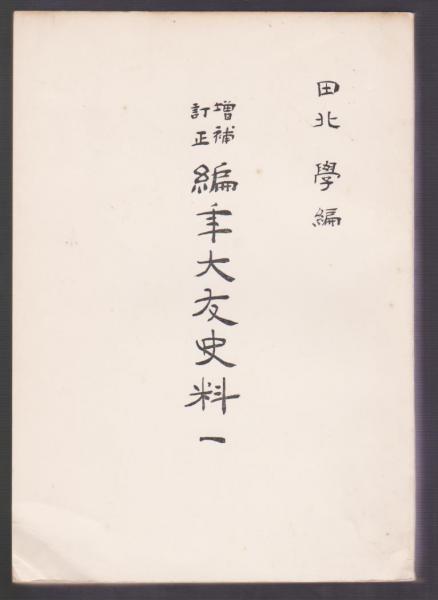 田北 學編
増補
訂正
編年大友史料 一